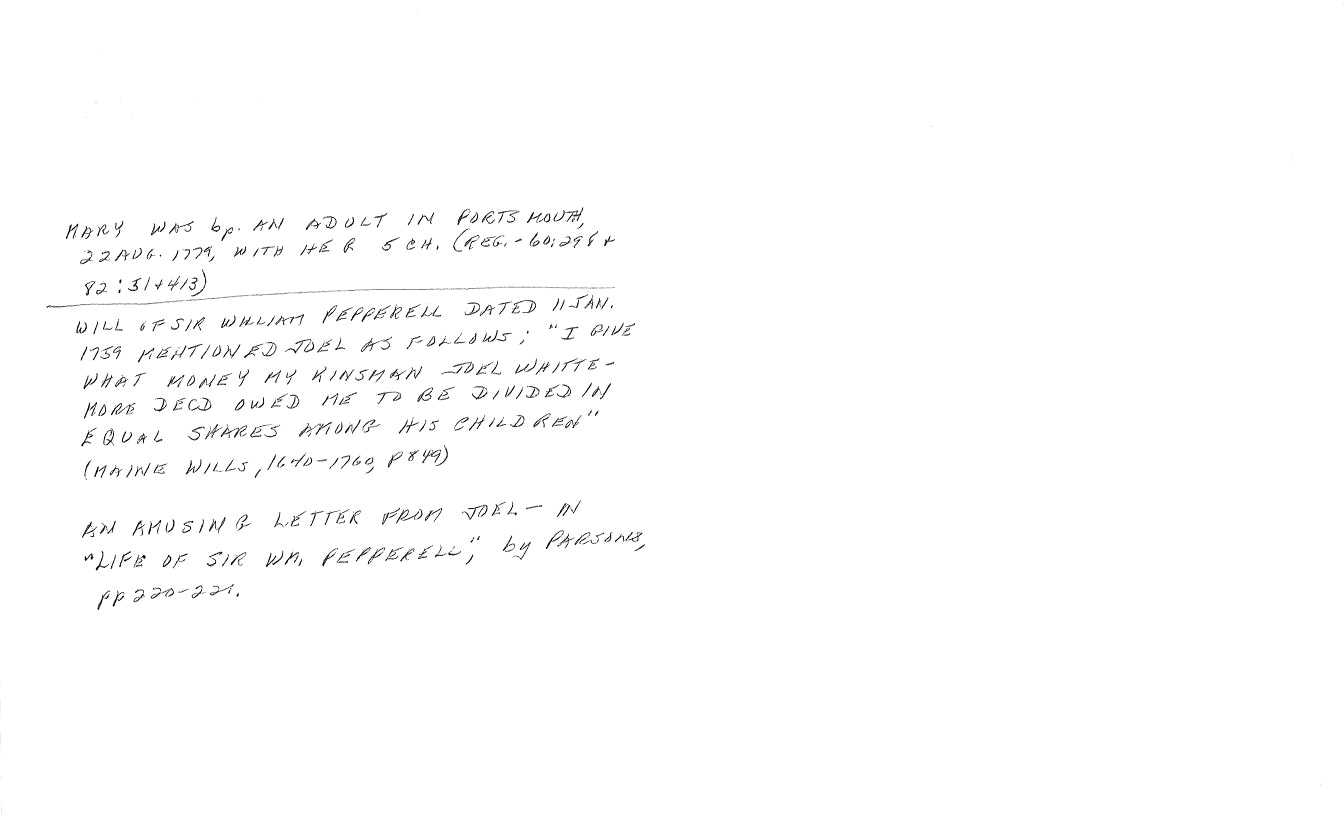 MARY WAS bp. AN ADULT IN PORTSMOUTH,
22 AUG. 1779, WITH HER 5 CH. (REG. - 60:298 +
82:51+413)
WILL OF SIR WILLIAM PEPPERELL DATED 11 JAN.
1759 MENTIONED JOEL AS FOLLOWS; "I GIVE
WHAT MONEY MY KINSMAN JOEL WHITTE-
MORE DECD OWED ME TO BE DIVIDED IN
EQUAL SHARES AMONG HIS CHILDREN"
(MAINE WILLS, 1640-1760, P849)
AN AMUSING LETTER FROM JOEL - IN
"LIFE OF SIR WM. PEPPERELL", by PARSONS,
pp 220-221.